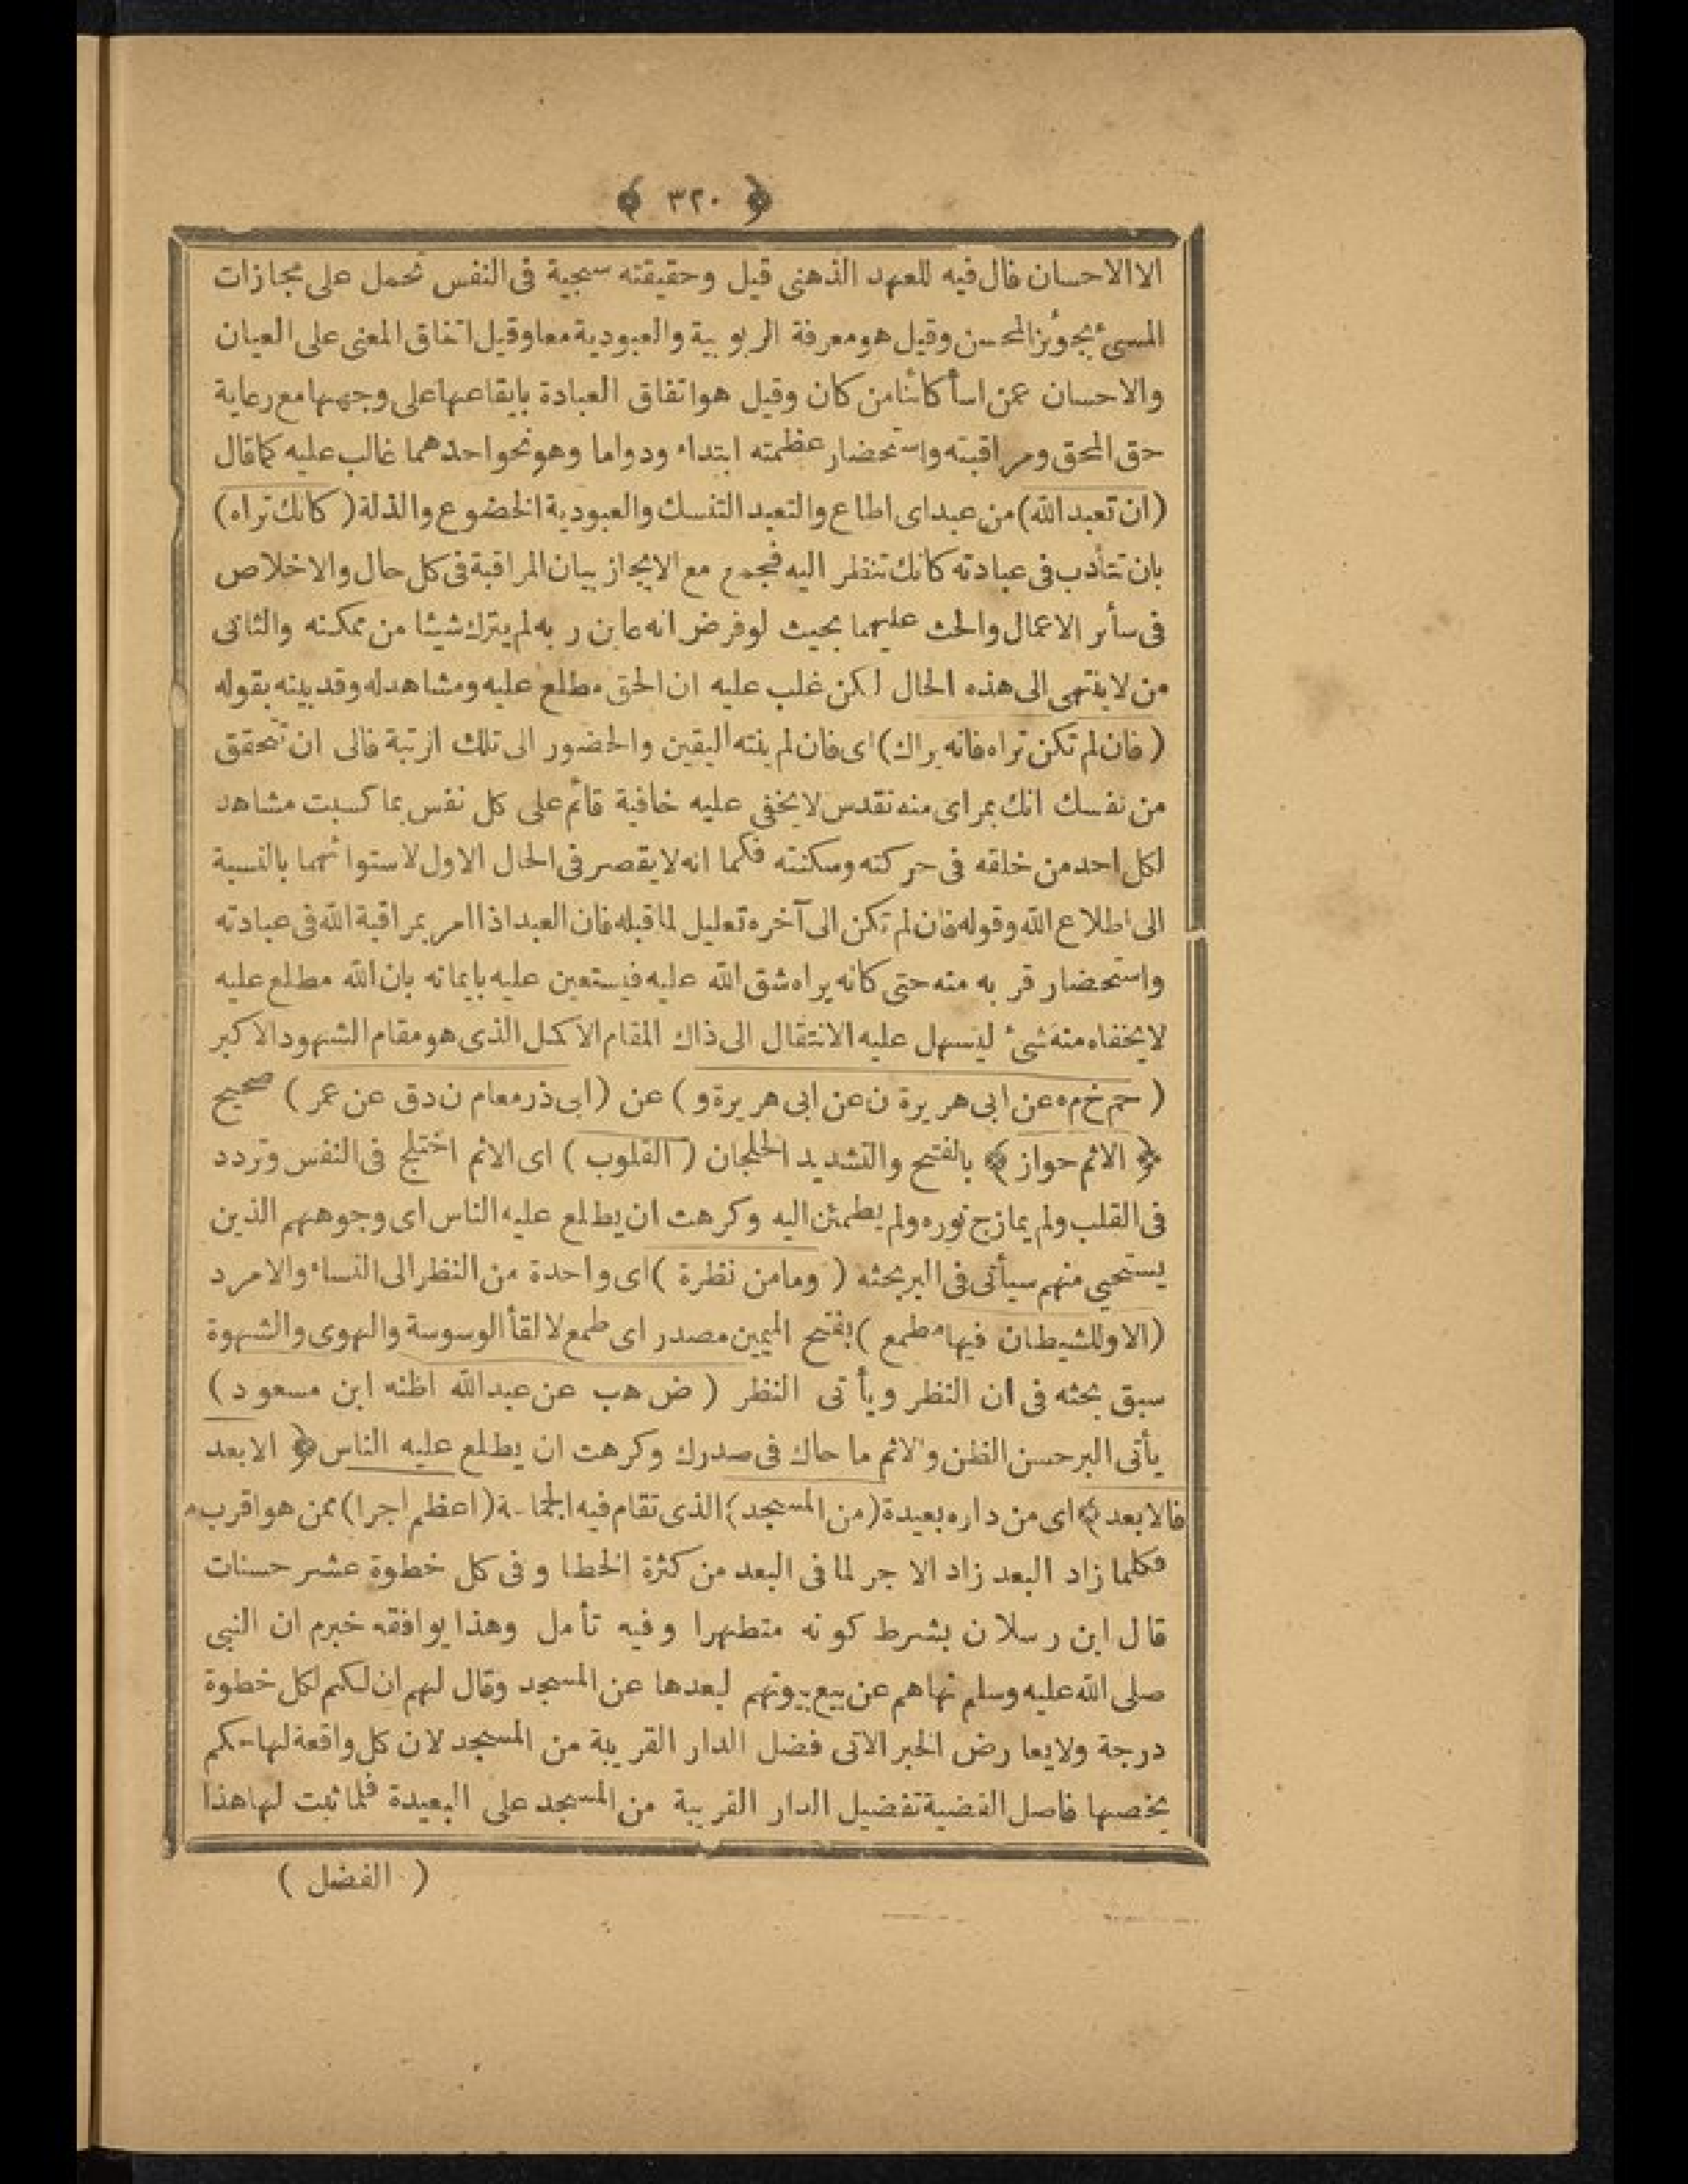 ﴿ ٣٢٠ ﴾
الا الاحسان فال فيه للعهد الذهنى قيل وحقيقته سجية فى النفس تحمل على مجازات
المسئ بجوئز المحسن وقيل هو معرفة الربوبية والعبودية معا وقيل اتفاق المعنى على العيان
والاحسان عمن اسأ كائنا من كان وقيل هو اتفاق العبادة بايقاعها على وجهها مع رعاية
حق الحق ومراقبته واستحضار عظمته ابتداء ودواما وهو نحوا حدهما غالب عليه كما قال
(ان تعبد الله) من عبد اى اطاع والتعبد التنسك والعبودية الخضوع والذلة (كانك تراه)
بان تتأدب فى عبادته كانك تنظر اليه فجمع مع الايجاز بيان المراقبة فى كل حال والاخلاص
فى سأئر الاعمال والحث عليهما بحيث لو فرض انه عاين ربه لم يترك شيئا من ممكنه والثانى
من لا ينتهى الى هذه الحال لكن غلب عليه ان الحق مطلع عليه ومشاهد له وقد بينه بقوله
(فان لم تكن تراه فانه يراك) اى فان لم ينته اليقين والحضور الى تلك الرتبة فالى ان تحقق
من نفسك انك بمراى منه تقدس لا يخفى عليه خافية قائم على كل نفس بما كسبت مشاهد
لكل احد من خلقه فى حركته وسكنته فكما انه لا يقصر فى الحال الاول لاستوائهما بالنسبة
الى اطلاع الله وقوله فان لم تكن الى آخره تعليل لما قبله فان العبد اذا امر بمراقبة الله فى عبادته
واستحضار قربه منه حتى كانه يراه شق الله عليه فيستعين عليه بايمانه بان الله مطلع عليه
لا يخفاه منه شئ ليسهل عليه الانتقال الى ذاك المقام الاكمل الذى هو مقام الشهود الاكبر
(حم خ م ه عن ابى هريرة ن عن ابى هريرة و) عن (ابى ذر معام ن د ق عن عمر) صحيح
﴿ الاثم حواز ﴾ بالفتح والتشديد الخلجان (القلوب) اى الاثم اختلج فى النفس وتردد
فى القلب ولم يمازج نوره ولم يطمئن اليه وكرهت ان يطلع عليه الناس اى وجوههم الذين
يستحيى منهم سيأتى فى البر بحثه (وما من نظرة) اى واحدة من النظر الى النساء والامرد
(الا وللشيطان فيها مطمع) بفتح الميمين مصدر اى طمع لالقأ الوسوسة والهوى والشهوة
سبق بحثه فى ان النظر ويأتى النظر (ض هب عن عبد الله اظنه ابن مسعود)
يأتى البر حسن الظن والاثم ما حاك فى صدرك وكرهت ان يطلع عليه الناس ﴿ الابعد
فالابعد ﴾ اى من داره بعيدة (من المسجد) الذى تقام فيه الجماعة (اعظم اجرا) ممن هو اقرب م
فكلما زاد البعد زاد الاجر لما فى البعد من كثرة الخطا وفى كل خطوة عشر حسنات
قال ابن رسلان بشرط كونه متطهرا وفيه تأمل وهذا يوافقه خبر م ان النبى
صلى الله عليه وسلم نهاهم عن بيع بيوتهم لبعدها عن المسجد وقال لهم ان لكم لكل خطوة
درجة ولا يعارض الخبر الآتى فضل الدار القريبة من المسجد لان كل واقعة لها حكم
يخصها فاصل القضية تفضيل الدار القريبة من المسجد على البعيدة فلما ثبت لها هذا
( الفضل )